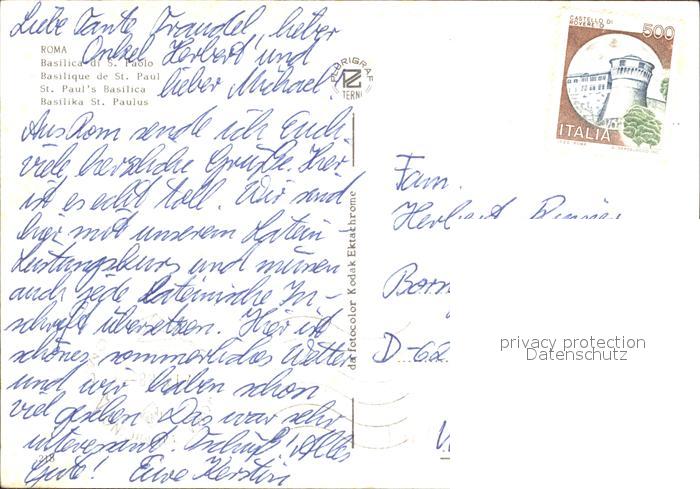 Liebe Tante Traudel, lieber
Onkel Herbert und
lieber Michael!
ROMA
Basilica di S. Paolo
Basilique de St. Paul
St. Paul's Basilica
Basilika St. Paulus
Aus Rom sende ich Euch
viele herzliche Grüße. Hier
ist es echt toll. Wir sind
hier mit unserem Latein-
Leistungskurs und müssen
auch jede lateinische In-
schrift übersetzen. Hier ist
schönes sommerliches Wetter
und wir haben schon
viel gesehen. Das war sehr
interessant. Tschüß! Alles
Gute! Eure Kerstin
218
PLURIGRAF
TERNI
da fotocolor Kodak Ektachrome
CASTELLO DI
ROVERETO
500
ITALIA
Fam.
Herbert
D-62
privacy protection
Datenschutz